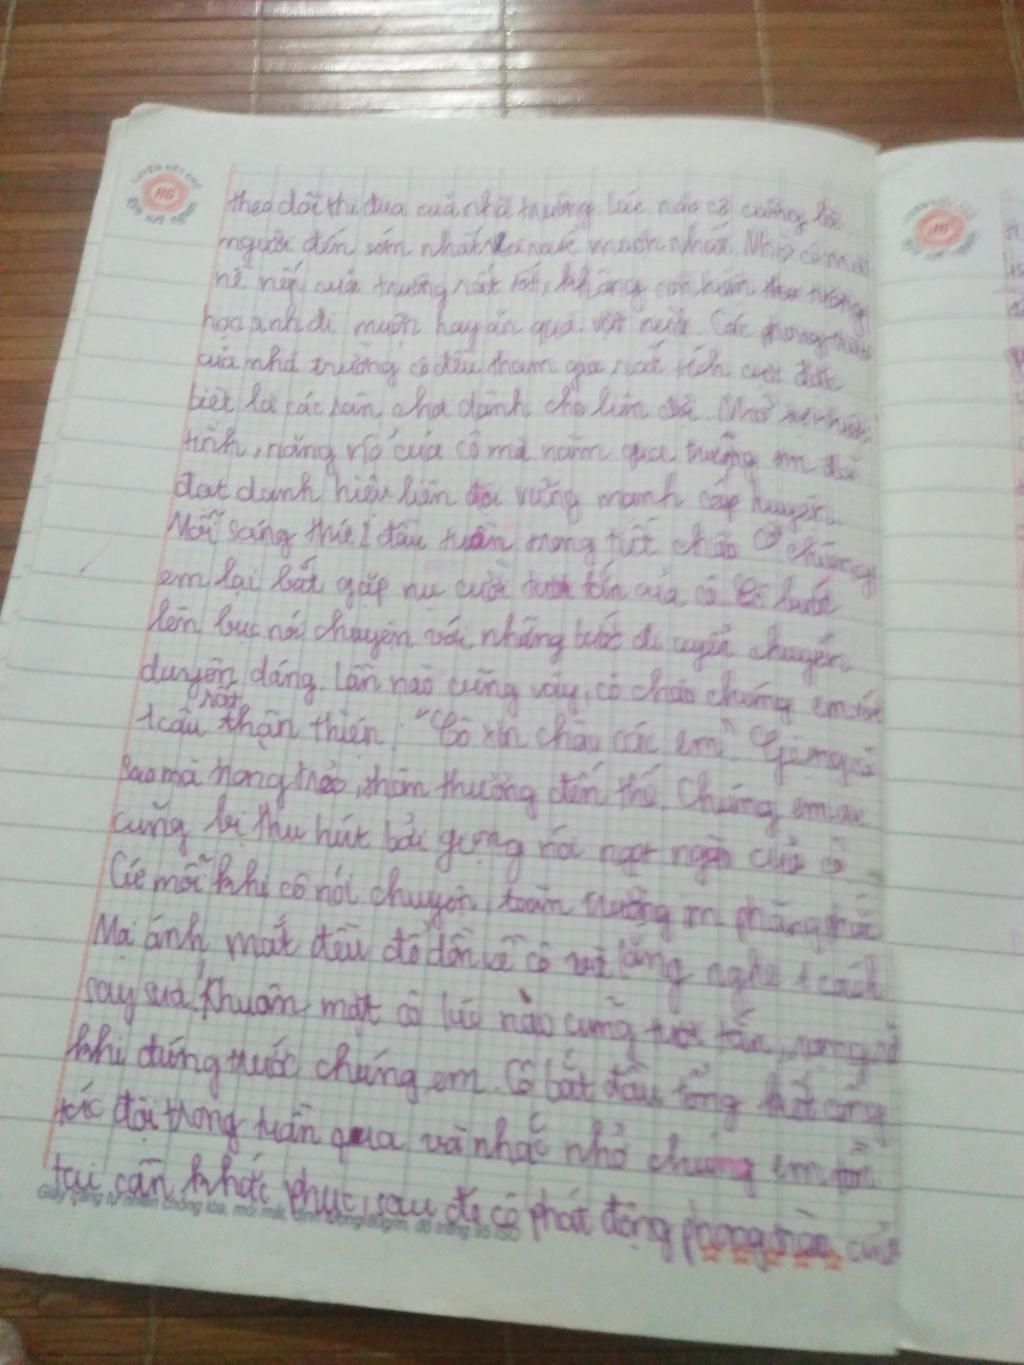 theo dõi thi đua của nhà trường. lúc nào cô cũng là
người đến sớm nhất và ra về muộn nhất. Nhờ có mà
nề nếp của trường rất tốt, không còn hiện tượng
học sinh đi muộn hay ăn quà vặt nữa. Các phong trào
của nhà trường cô đều tham gia rất tích cực đặc
biệt là các sân chơi dành cho liên đội. Nhờ sự nhiệt
tình, năng nổ của cô mà năm qua trường em đã
đạt danh hiệu liên đội vững mạnh cấp huyện.
Mỗi sáng thứ 2 đầu tuần trong tiết chào cờ chúng
em lại bắt gặp nụ cười tươi tắn của cô. Cô bước
lên bục nói chuyện với những bước đi uyển chuyển
duyên dáng. Lần nào cũng vậy, cô chào chúng em
1 câu rất thận thiện: "Cô xin chào các em" Giọng cô
sao mà trong trẻo, thân thương đến thế. Chúng em ai
cũng bị thu hút bởi giọng nói ngọt ngào của cô
Cứ mỗi khi cô nói chuyện, toàn trường im phăng phắc
Mọi ánh mắt đều đổ dồn về cô và lắng nghe 1 cách
say sưa. Khuôn mặt cô lúc nào cũng tươi tắn, rạng rỡ
khi đứng trước chúng em. Cô bắt đầu tổng kết công
tác đội trong tuần qua và nhắc nhở chúng em tồn
tại cần khắc phục, sau đó cô phát động phong trào của
LUYỆN VIẾT CHỮ
HG
HG
Giấy trắng tự nhiên chống lóa, mỏi mắt, định lượng